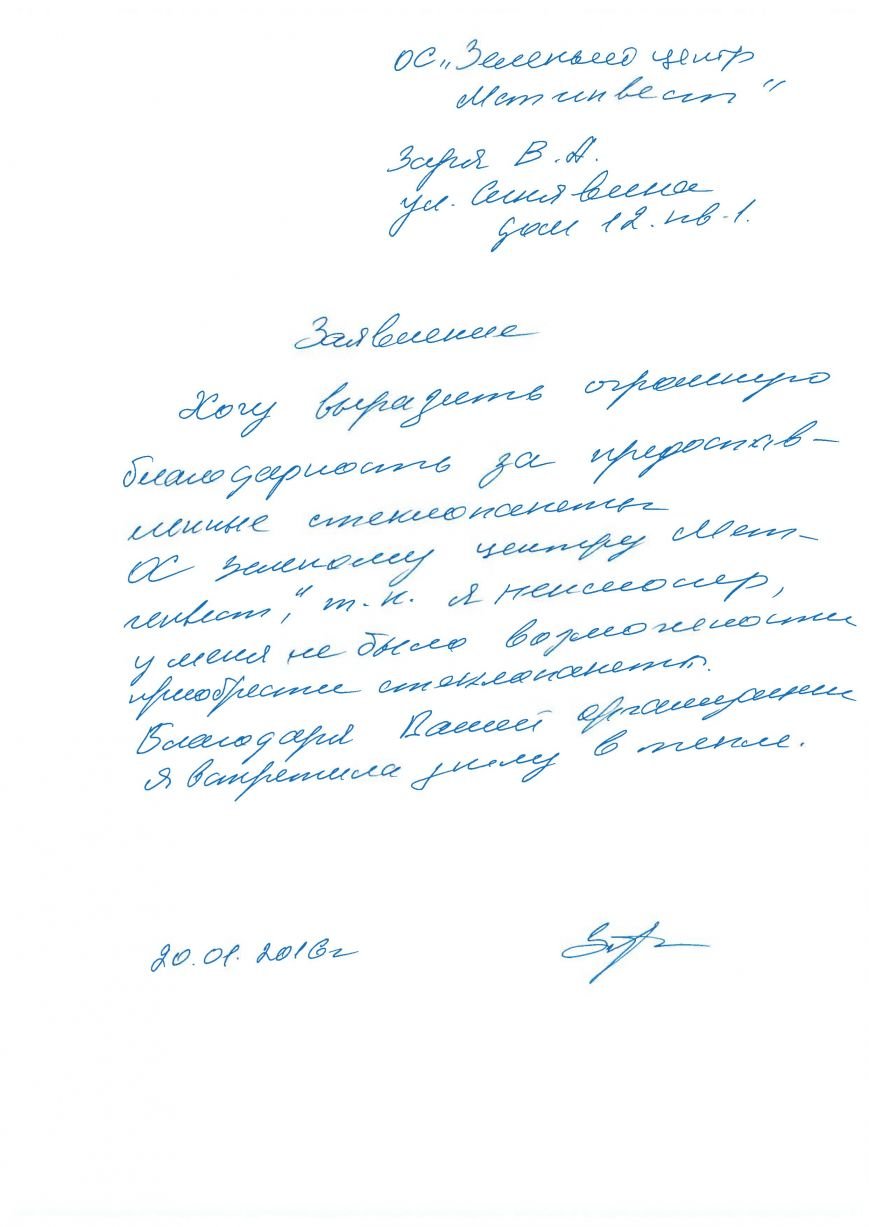 ОС „Зеленый центр
Метинвест"
Заря В.А.
ул. Синявина
дом 12. кв-1.
Заявление
Хочу выразить огромную
благодарность за предостав-
ленные стеклопакеты
ОС Зеленому центру Мет-
инвест", т.к. я пенсионер,
у меня не было возможности
приобрести стеклопакеты.
Благодаря Вашей организации
я встретила зиму в тепле.
20.01.2016г